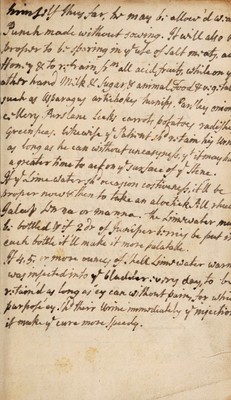 himself thus far, he may be allow'd weak
Punch made without souring. It will also be
proper to be sparing in ye use of salt meats, as
Honey & to refrain from all acid fruits, while on ye
other hand Milk & Sugar & animal Food & vegetables
such as Asparagus artichokes turnips Parsley onions
cellery Purslane Leeks carrots potatoes radishes
Green pees. Likewise ye Patient shd retain his Urine
as long as he can without uneasyness, yt it may have
a greater time to act on ye surface of ye Stone.
If ye Lime water shd occasion costiveness, it'll be
proper now & then to take an
or manna. The Lime water may
be bottled & if 2 dr of Juniper berries be put in
each bottle it'll make it more palatable.
If 4, 5, or more ounces of shell Lime water warm
was injected into ye bladder every day to be
retain'd as long as ey can without pain, for which
purpose ey shd their Urine immediately ye injection
it make ye cure more speedy.